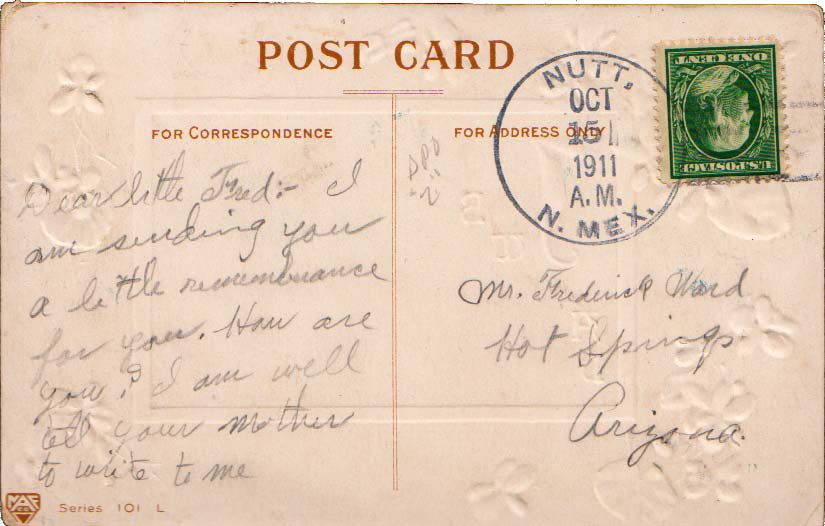 POST CARD
FOR CORRESPONDENCE
FOR ADDRESS ONLY
NUTT,
OCT
15
1911
A.M.
N. MEX.
U.S. POSTAGE
ONE CENT
Dear little Fred:- I
am sending you
a little remembrance
for you. How are
you? I am well
tell your mother
to write to me
Mr. Frederick Ward
Hot Springs
Arizona.
Series 101 L